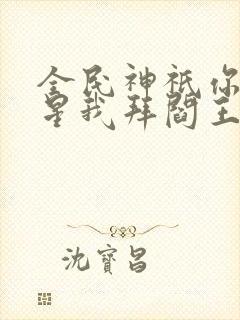 全民神祇你
星我拜阎王
沈寶昌